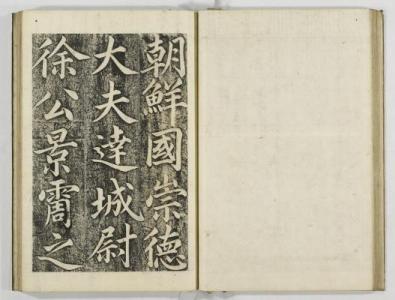 朝鮮國崇德
大夫達城尉
徐公景霌之